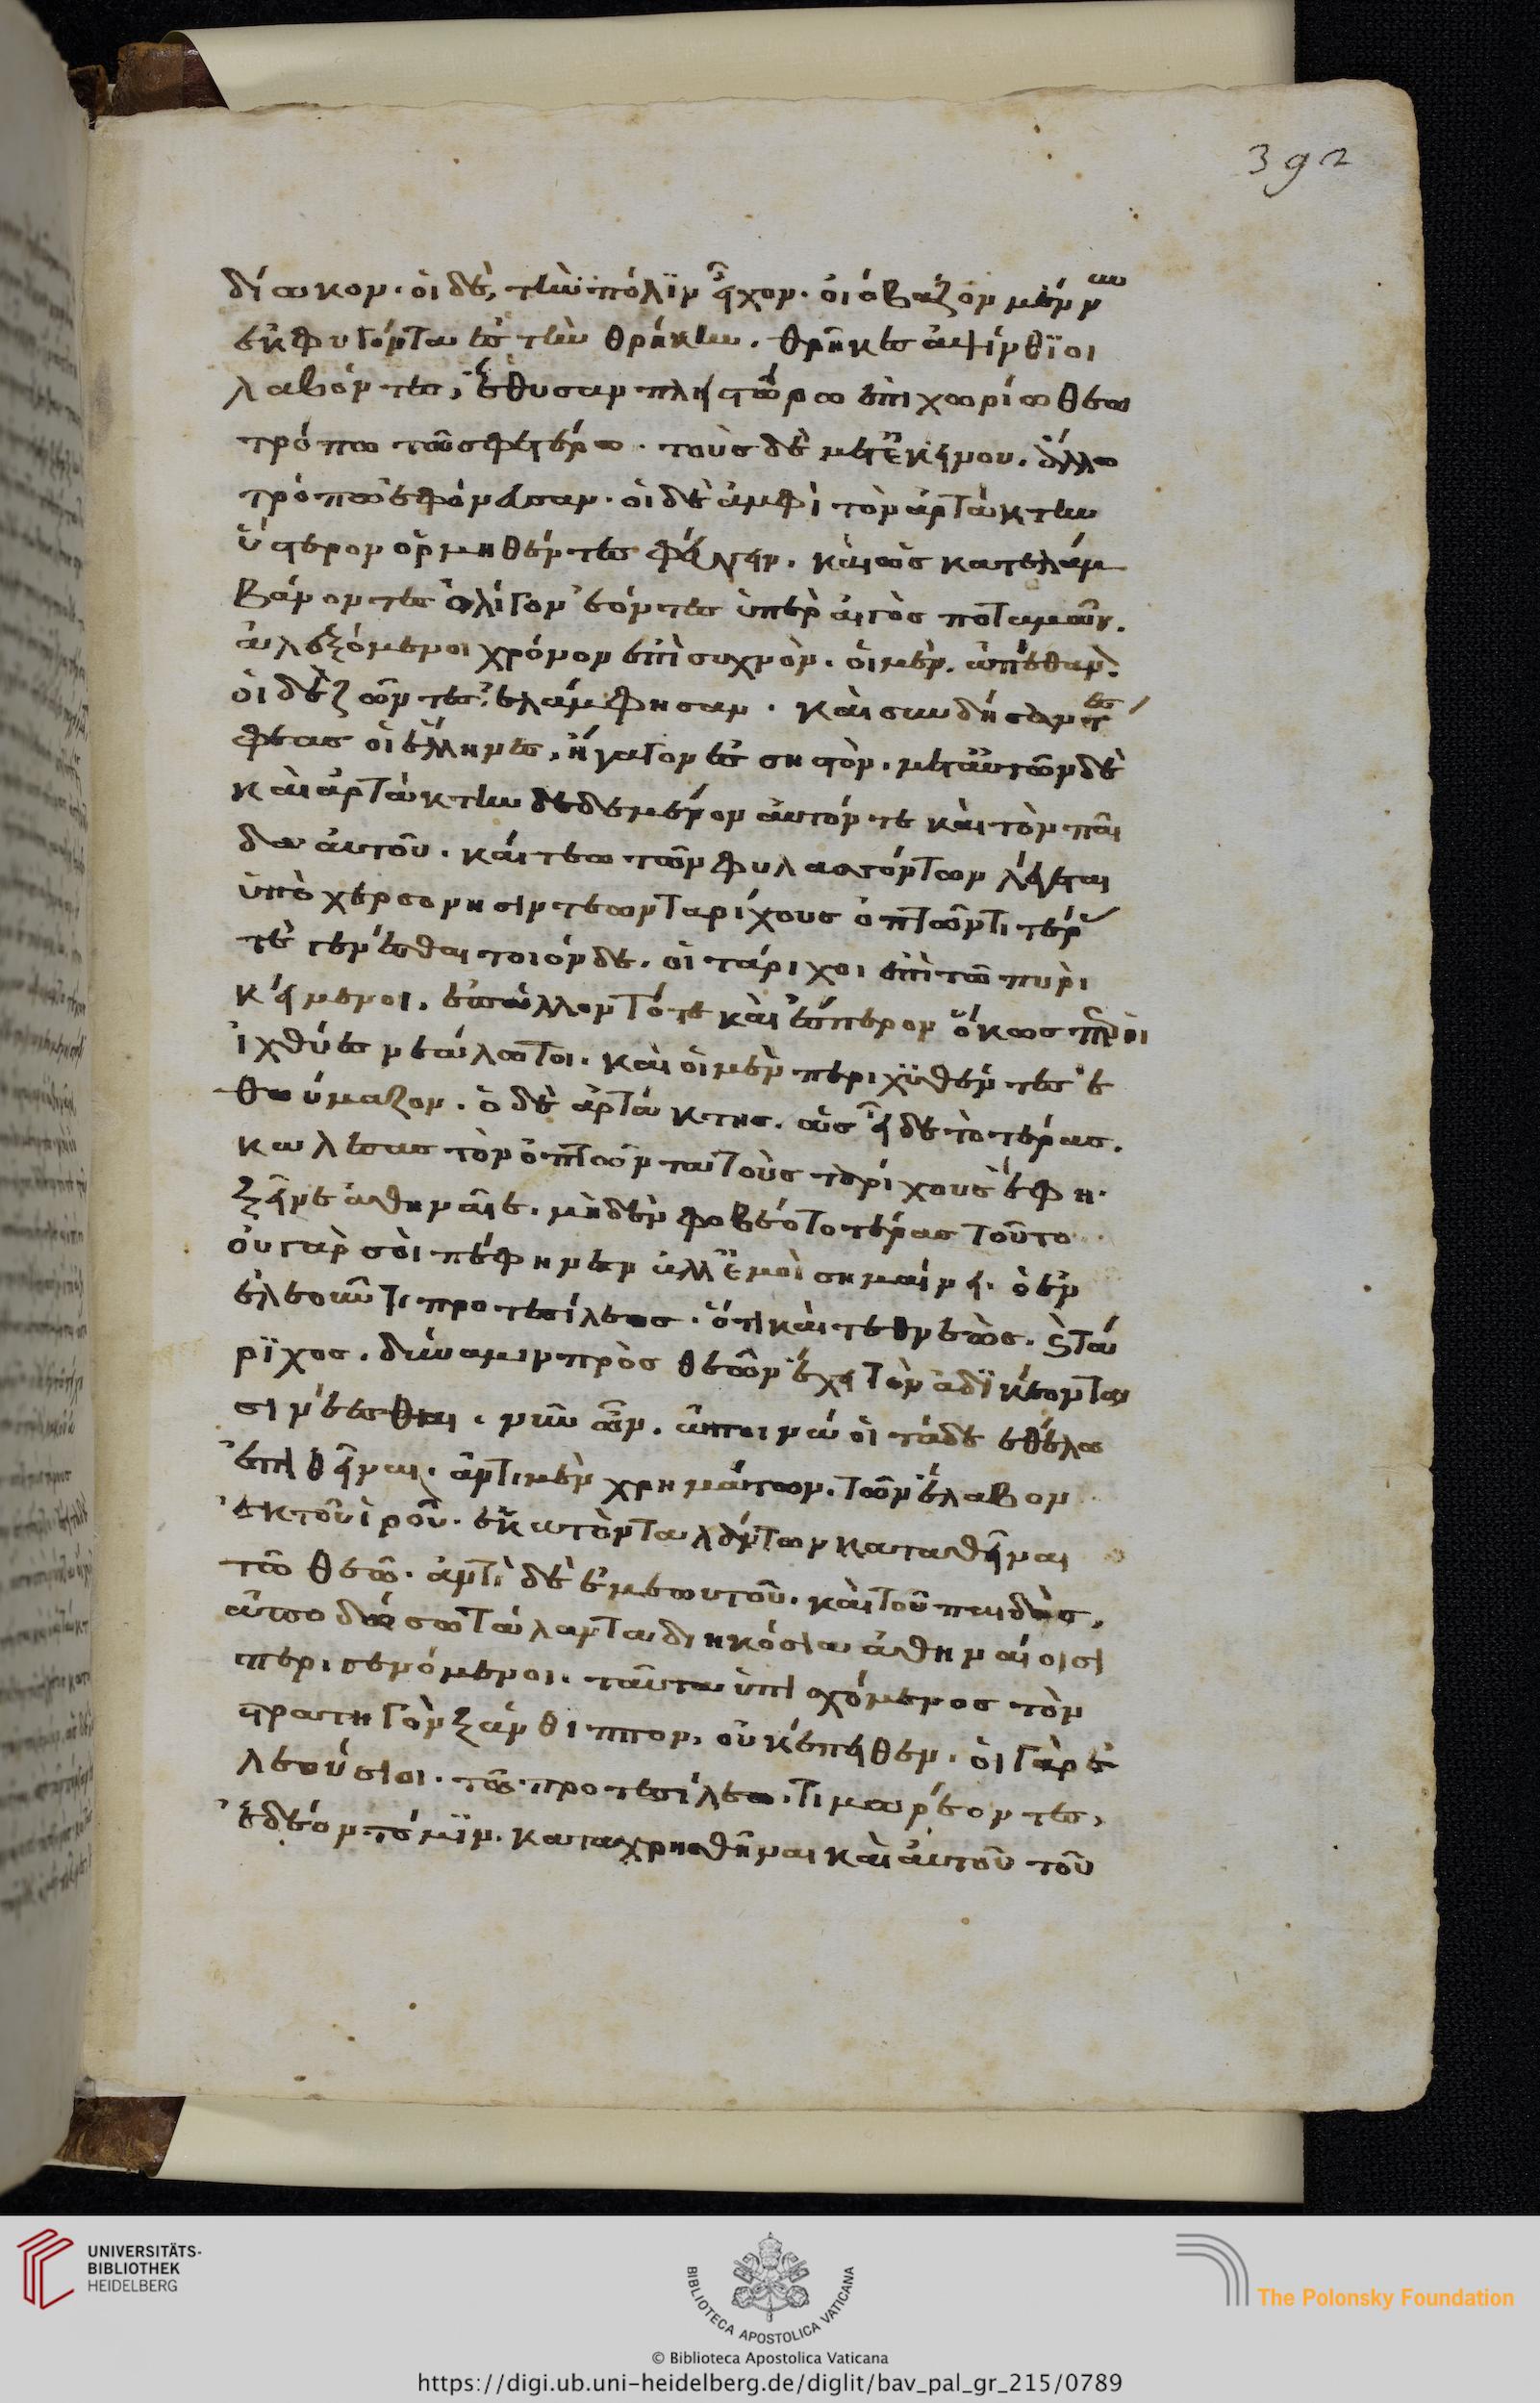 392
δίωκον. οἱ δὲ, τὴν πόλϊν εἶχον. οἰόβαζον μέν νυν
ἐκφυγόντα ἐς τὴν θρήκην. θρῆκες ἀψίνθϊοι
λαβόντες, ἔθυσαν πλειστώρω ἐπιχωρίω θεῶ
τρόπω τῶ σφετέρω. τοὺς δὲ μετ' ἐκείνου. ἄλλω
τρόπω ἐφόνευσαν. οἱ δὲ ἀμφὶ τὸν ἀρταύκτην
ὕστερον ὁρμηθέντες φεύγειν. καὶ ὡς κατελαμ
βάνοντες ὀλίγον ἐόντες ὑπὲρ αἰγὸς ποταμῶν.
ἀλεξόμενοι χρόνον ἐπὶ συχνὸν. οἱ μὲν. ἀπέθανον.
οἱ δὲ ζῶντες ἐλάμφθησαν. καὶ συνδήσαντές
σφεας οἱ ἕλληνες, ἤγαγον ἐς σηστὸν. μετ' αὐτῶν δὲ
καὶ ἀρταύκτην δεδεμένον αὐτόν τε καὶ τὸν παῖ
δα αὐτοῦ. καί τεω τῶν φυλασσόντων λέγεται
ὑπὸ χερσονησιτέων ταρίχους ὀπτῶντι τέρας
τὲ γενέσθαι τοιόνδε. οἱ τάριχοι ἐπὶ τῶ πυρὶ
κείμενοι. ἐπάλλοντό τε καὶ ἤσπαιρον ὅκως περ οἱ
ἰχθύες νεάλωτοι. καὶ οἱ μὲν περιχϋθέντες ἐ
θωύμαζον. ὁ δὲ ἀρταύκτης. ὡς εἶδε τὸ τέρας.
καλέσας τὸν ὀπτῶντα τοὺς ταρίχους ἔφη.
ξεῖνε ἀθηναῖε. μηδὲν φοβέο τὸ τέρας τοῦτο
οὐ γὰρ σοὶ πέφηνεν ἀλλ' ἐμοὶ σημαίνει. ὁ ἐν
ἐλεοῦντι προτεσίλεως. ὅτι καὶ τεθνεὼς. καὶ τά
ρϊχος. δύναμιν πρὸς θεῶν ἔχει τὸν ἀδϊκέοντα
σινέεσθαι. νῦν ὦν. ἄποινά οἱ τάδε ἐθέλω
ἐπιθεῖναι. ἀντὶ μὲν χρημάτων. τῶν ἔλαβον
ἐκ τοῦ ἱροῦ. ἑκατὸν τάλαντα καταθεῖναι
τῶ θεῶ. ἀντὶ δὲ ἐμεωυτοῦ. καὶ τοῦ παιδὸς,
ἀποδώσω τάλαντα διηκόσια ἀθηναίοισι
περιγενόμενοι. ταῦτα ὑπισχόμενος τὸν
στρατηγὸν ξάνθιππον, οὐκ ἔπειθεν. οἱ γὰρ ἐ
λεούσιοι. τῶ προτεσίλεω. τιμωρέοντες,
ἐδέοντό μϊν. καταχρησθῆναι καὶ αὐτοῦ τοῦ
UNIVERSITÄTS-
BIBLIOTHEK
HEIDELBERG
BIBLIOTECA APOSTOLICA VATICANA
The Polonsky Foundation
© Biblioteca Apostolica Vaticana
https://digi.ub.uni-heidelberg.de/diglit/bav_pal_gr_215/0789